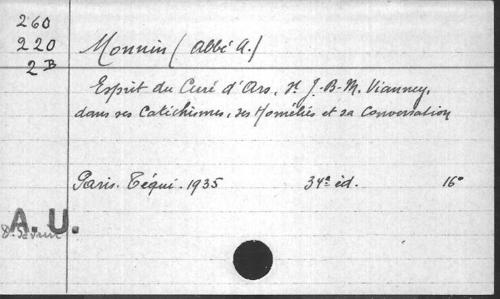 260
220
2 B
Monnin (Abbé A.)
Esprit du Curé d'Ars, St J.-B-M. Vianney,
dans ses Catéchismes, ses Homélies et sa Conversation
Paris. Téqui. 1935 34e éd. 16°
A. U.